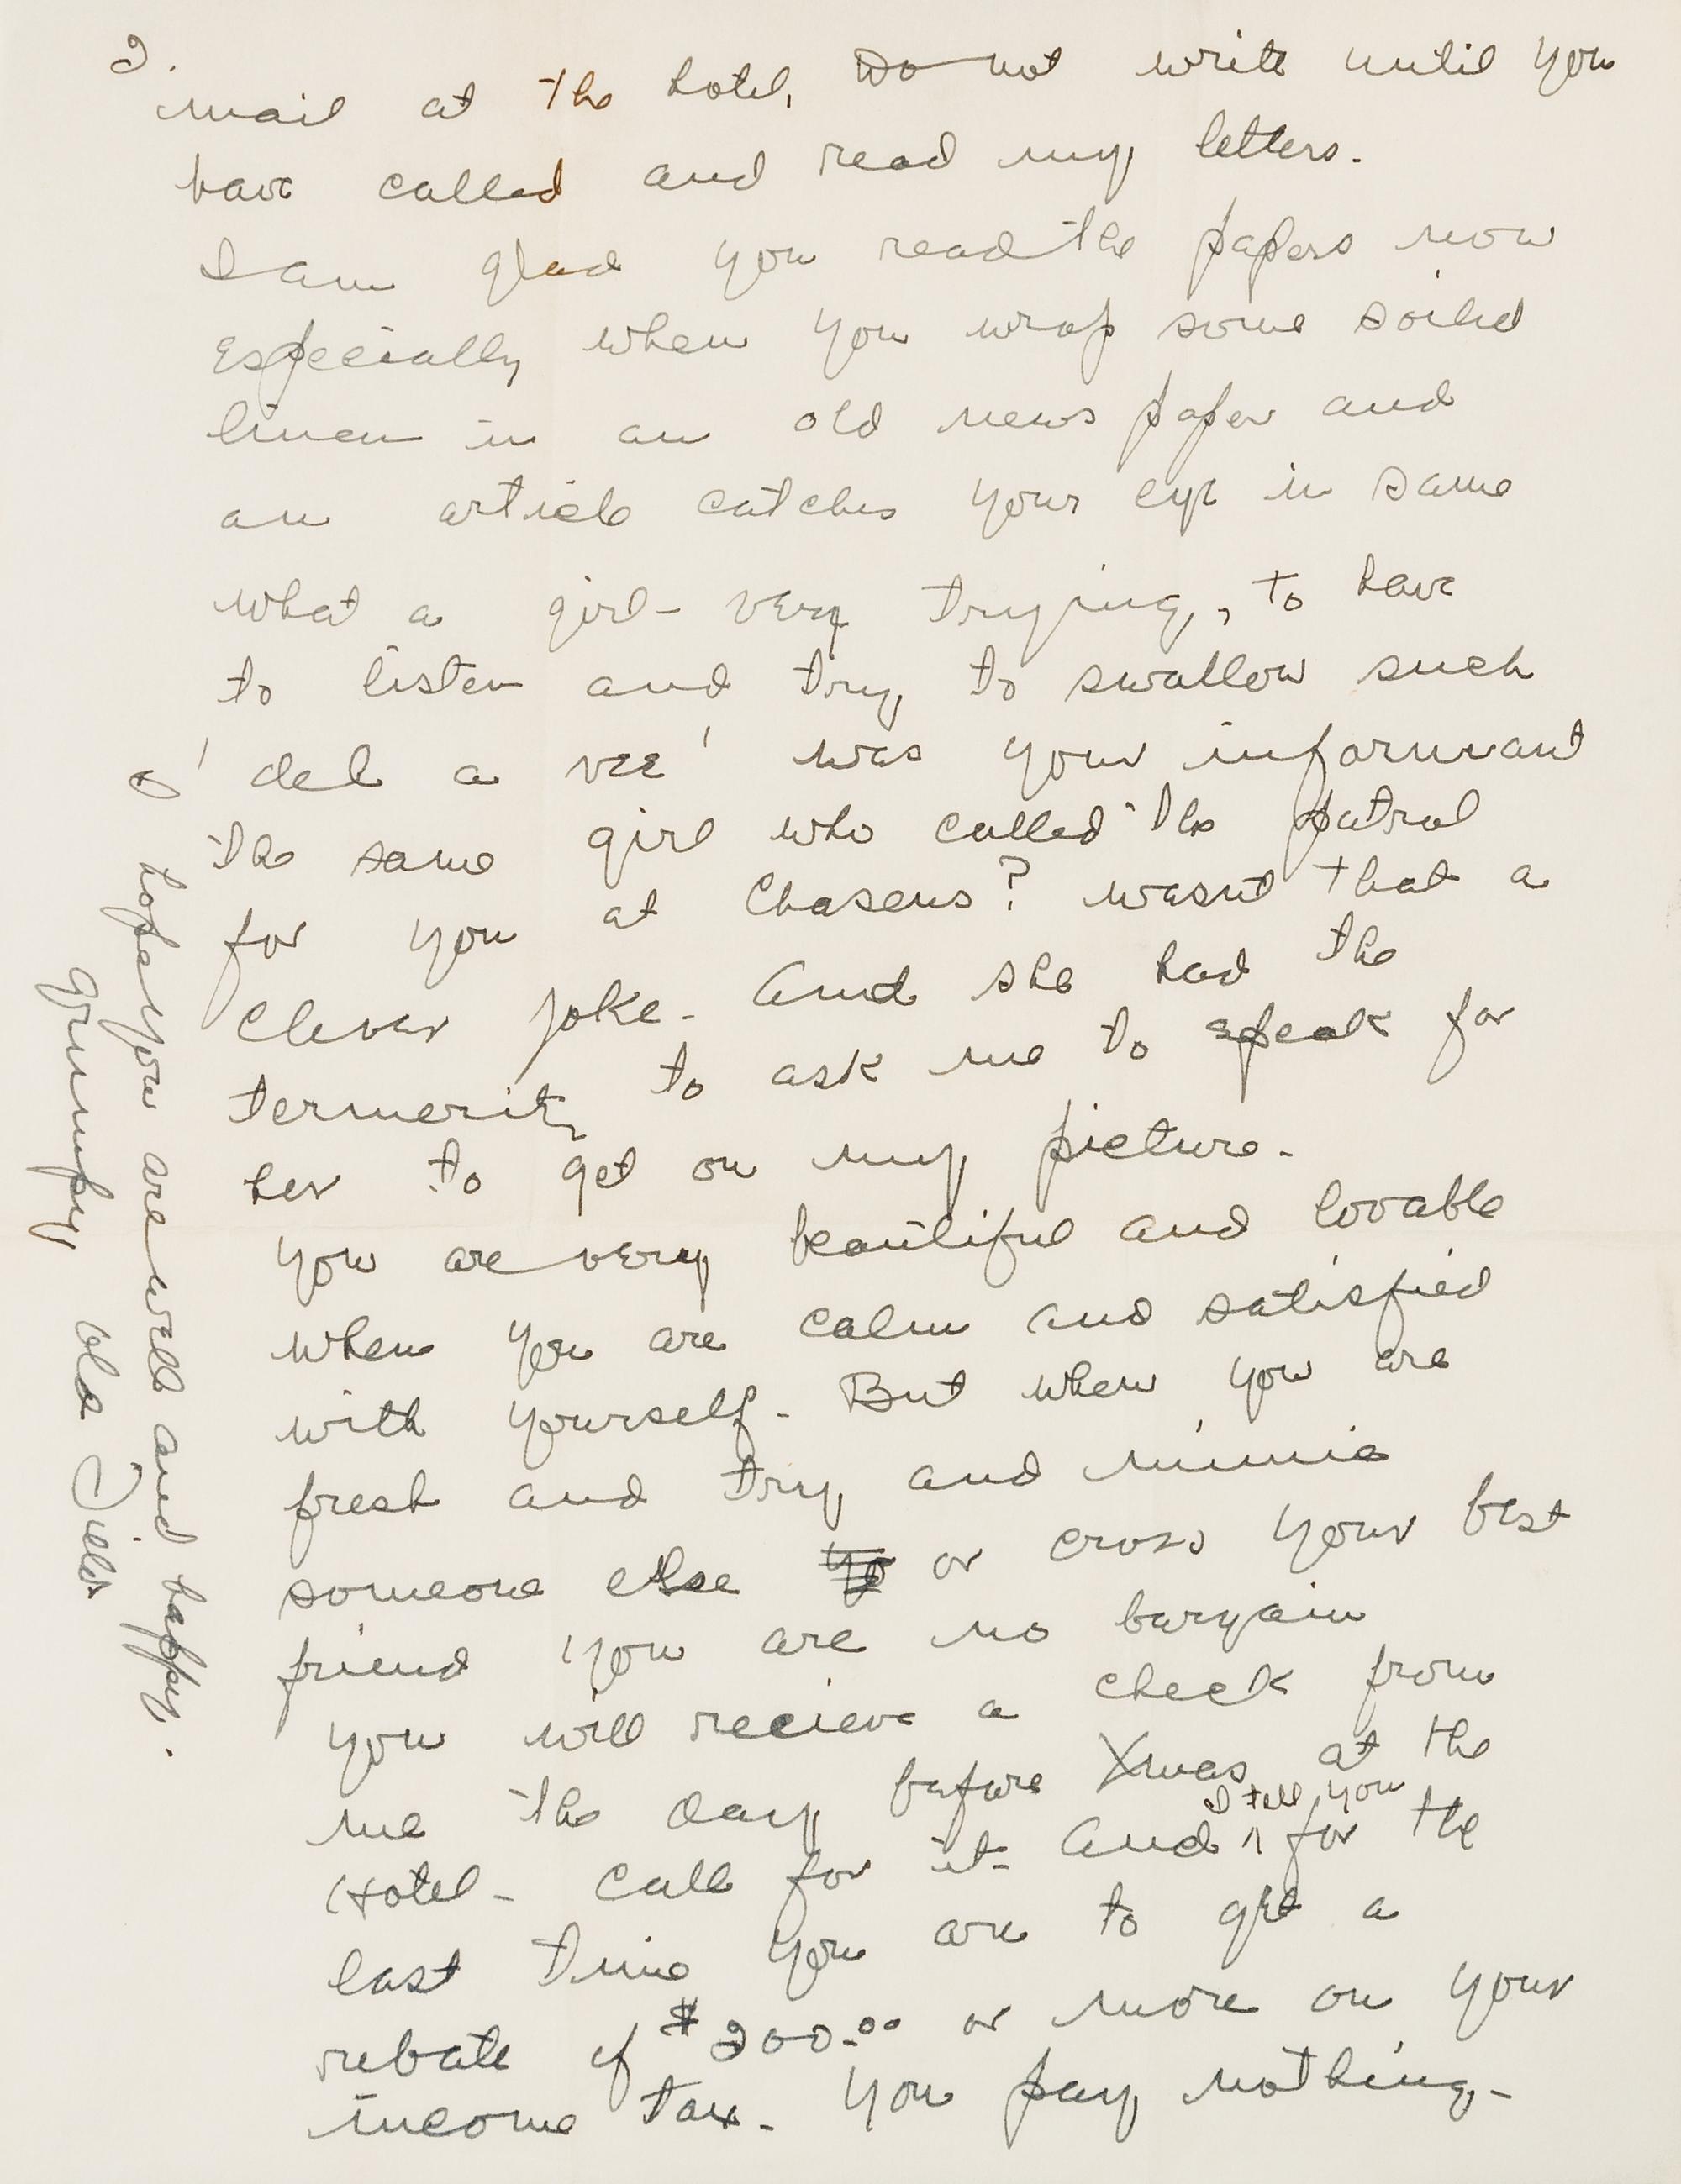 2.
mail at the hotel. Do not write until you
have called and read my letters.
I am glad you read the papers now
Especially when you wrap some soiled
linen in an old news paper and
an article catches your eye in same
what a girl - very trying, to have
to listen and try to swallow such
'deh a vee' was your informant
the same girl who called the patrol
for you at Chasens? wasnt that a
clever joke - And she had the
termerity to ask me to speak for
her to get on my picture -
you are very beautiful and lovable
when you are calm and satisfied
with yourself - But when you are
fresh and try and mimic
someone else or cross your best
friend you are no bargain
you will recieve a check from
me the day before Xmas at the
Hotel - Call for it - And I tell you for the
last time you are to get a
rebate of $200.00 or more on your
income tax - You pay nothing -
I hope you are well and happy.
grumpy old Fields